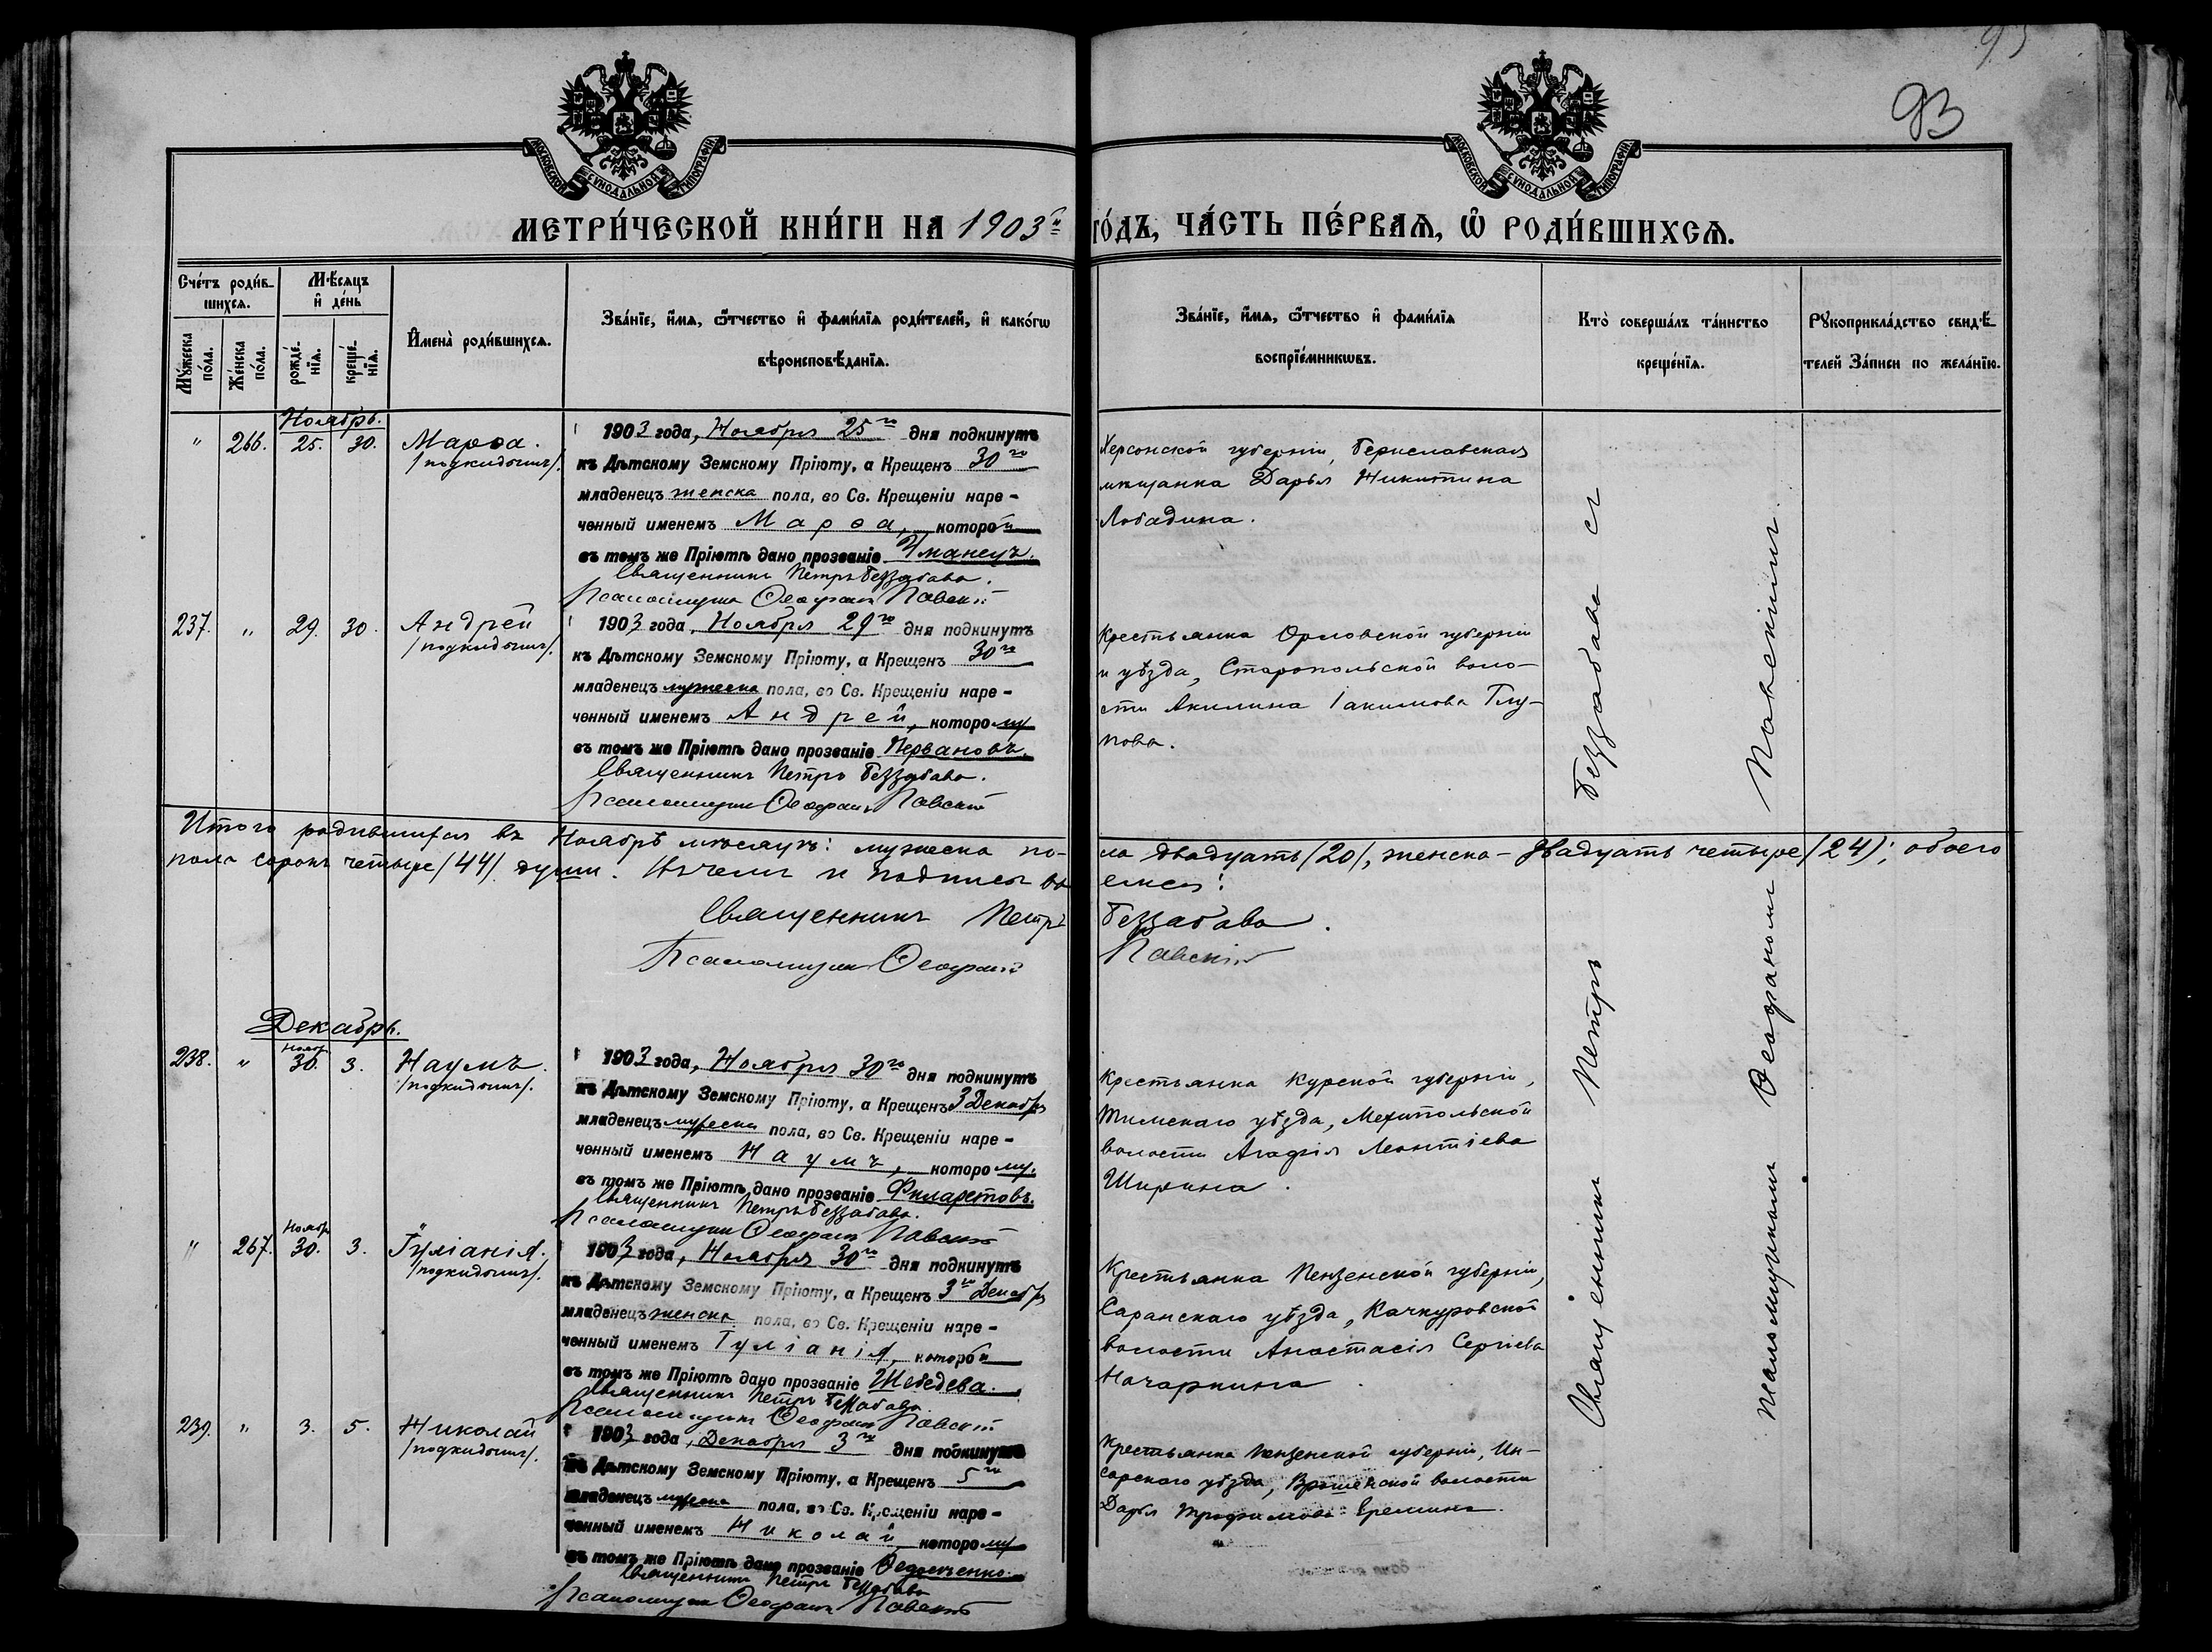 93
МОСКОВСКОЙ СѴНОДАЛЬНОЙ ТИПОГРАФІИ
МОСКОВСКОЙ СѴНОДАЛЬНОЙ ТИПОГРАФІИ
МЕТРИ́ЧЕСКОЙ КНИ́ГИ НА 1903й ГО́ДЪ, ЧА́СТЬ ПЕ́РВАѦ, Ѡ РОДИ́ВШИХСѦ.
Сче́тъ роди́в-
шихсѧ.
Мѣ́сѧцъ
и҆ де́нь
Мꙋ́жеска по́ла.
Же́нска по́ла.
рожде́-
нїѧ.
креще́-
нїѧ.
И҆мена̀ роди́вшихсѧ.
Зва́нїе, и҆́мѧ, ѻ҆́тчество и҆ фами́лїѧ роди́телей, и҆ како́гѡ
вѣроисповѣ́данїѧ.
Зва́нїе, и҆́мѧ, ѻ҆́тчество и҆ фами́лїѧ
воспрїе́мникѡвъ.
Кто̀ соверша́лъ та́инство
креще́нїѧ.
Рꙋкоприкла́дство свидѣ́-
телей за́писи по жела́нїю.
Ноябрь.
" 266. 25. 30. Марѳа.
/подкидышъ/.
1903 года, Ноября 25го дня подкинутъ
къ Дѣтскому Земскому Пріюту, а Крещенъ 30го
младенецъ женска пола, во Св. Крещеніи наре-
ченный именемъ Марѳа, которой
въ томъ же Пріютѣ дано прозваніе Уманецъ.
Священникъ Петръ Беззабава.
Псаломщикъ Ѳеофанъ Павскій
Херсонской губерніи, Бериславская
мѣщанка Дарья Никитина
Лободина.
237. " 29. 30. Андрей
/подкидышъ/.
1903 года, Ноября 29го дня подкинутъ
къ Дѣтскому Земскому Пріюту, а Крещенъ 30го
младенецъ мужеска пола, во Св. Крещеніи наре-
ченный именемъ Андрей, которому
въ томъ же Пріютѣ дано прозваніе Первановъ.
Священникъ Петръ Беззабава.
Псаломщикъ Ѳеофанъ Павскій
Крестьянка Орловской губерніи
и уѣзда, Старопольской воло-
сти Акилина Іакимова Глу-
пова.
Итого родившихся въ Ноябрѣ мѣсяцѣ: мужеска по-ла двадцать /20/, женска - двадцать четыре /24/; обоего
пола сорокъ четыре /44/ души.
Священникъ Петръ Беззабава.
Псаломщикъ Ѳеофанъ Павскій
Декабрь.
238. " Ноябр. 30. 3. Наумъ.
/подкидышъ/.
1903 года, Ноября 30го дня подкинутъ
къ Дѣтскому Земскому Пріюту, а Крещенъ 3 Декабря
младенецъ мужеска пола, во Св. Крещеніи наре-
ченный именемъ Наумъ, которому
въ томъ же Пріютѣ дано прозваніе Филаретовъ.
Священникъ Петръ Беззабава.
Псаломщикъ Ѳеофанъ Павскій
Крестьянка Курской губерніи,
Тимскаго уѣзда, Мехипольской
волости Агафія Леонтіева
Ширина.
" 267. Ноябр. 30. 3. Іуліанія.
/подкидышъ/.
1903 года, Ноября 30го дня подкинутъ
къ Дѣтскому Земскому Пріюту, а Крещенъ 3го Декабря
младенецъ женска пола, во Св. Крещеніи наре-
ченный именемъ Іуліанія, которой
въ томъ же Пріютѣ дано прозваніе Шебедева.
Священникъ Петръ Беззабава.
Псаломщикъ Ѳеофанъ Павскій
Крестьянка Пензенской губерніи,
Саранскаго уѣзда, Качкуровской
волости Анастасія Сергіева
Начаркина.
239. " 3. 5. Николай
/подкидышъ/.
1903 года, Декабря 3го дня подкинутъ
къ Дѣтскому Земскому Пріюту, а Крещенъ 5го
младенецъ мужеска пола, во Св. Крещеніи наре-
ченный именемъ Николай, которому
въ томъ же Пріютѣ дано прозваніе Ѳедорченко.
Священникъ Петръ Беззабава
Псаломщикъ Ѳеофанъ Павскій
Крестьянка Пензенской губерніи, Ин-
сарскаго уѣзда, волости
Дарья Трофимова Еремина.
Священникъ Петръ Беззабава съ
псаломщикомъ Ѳеофаномъ Павскимъ